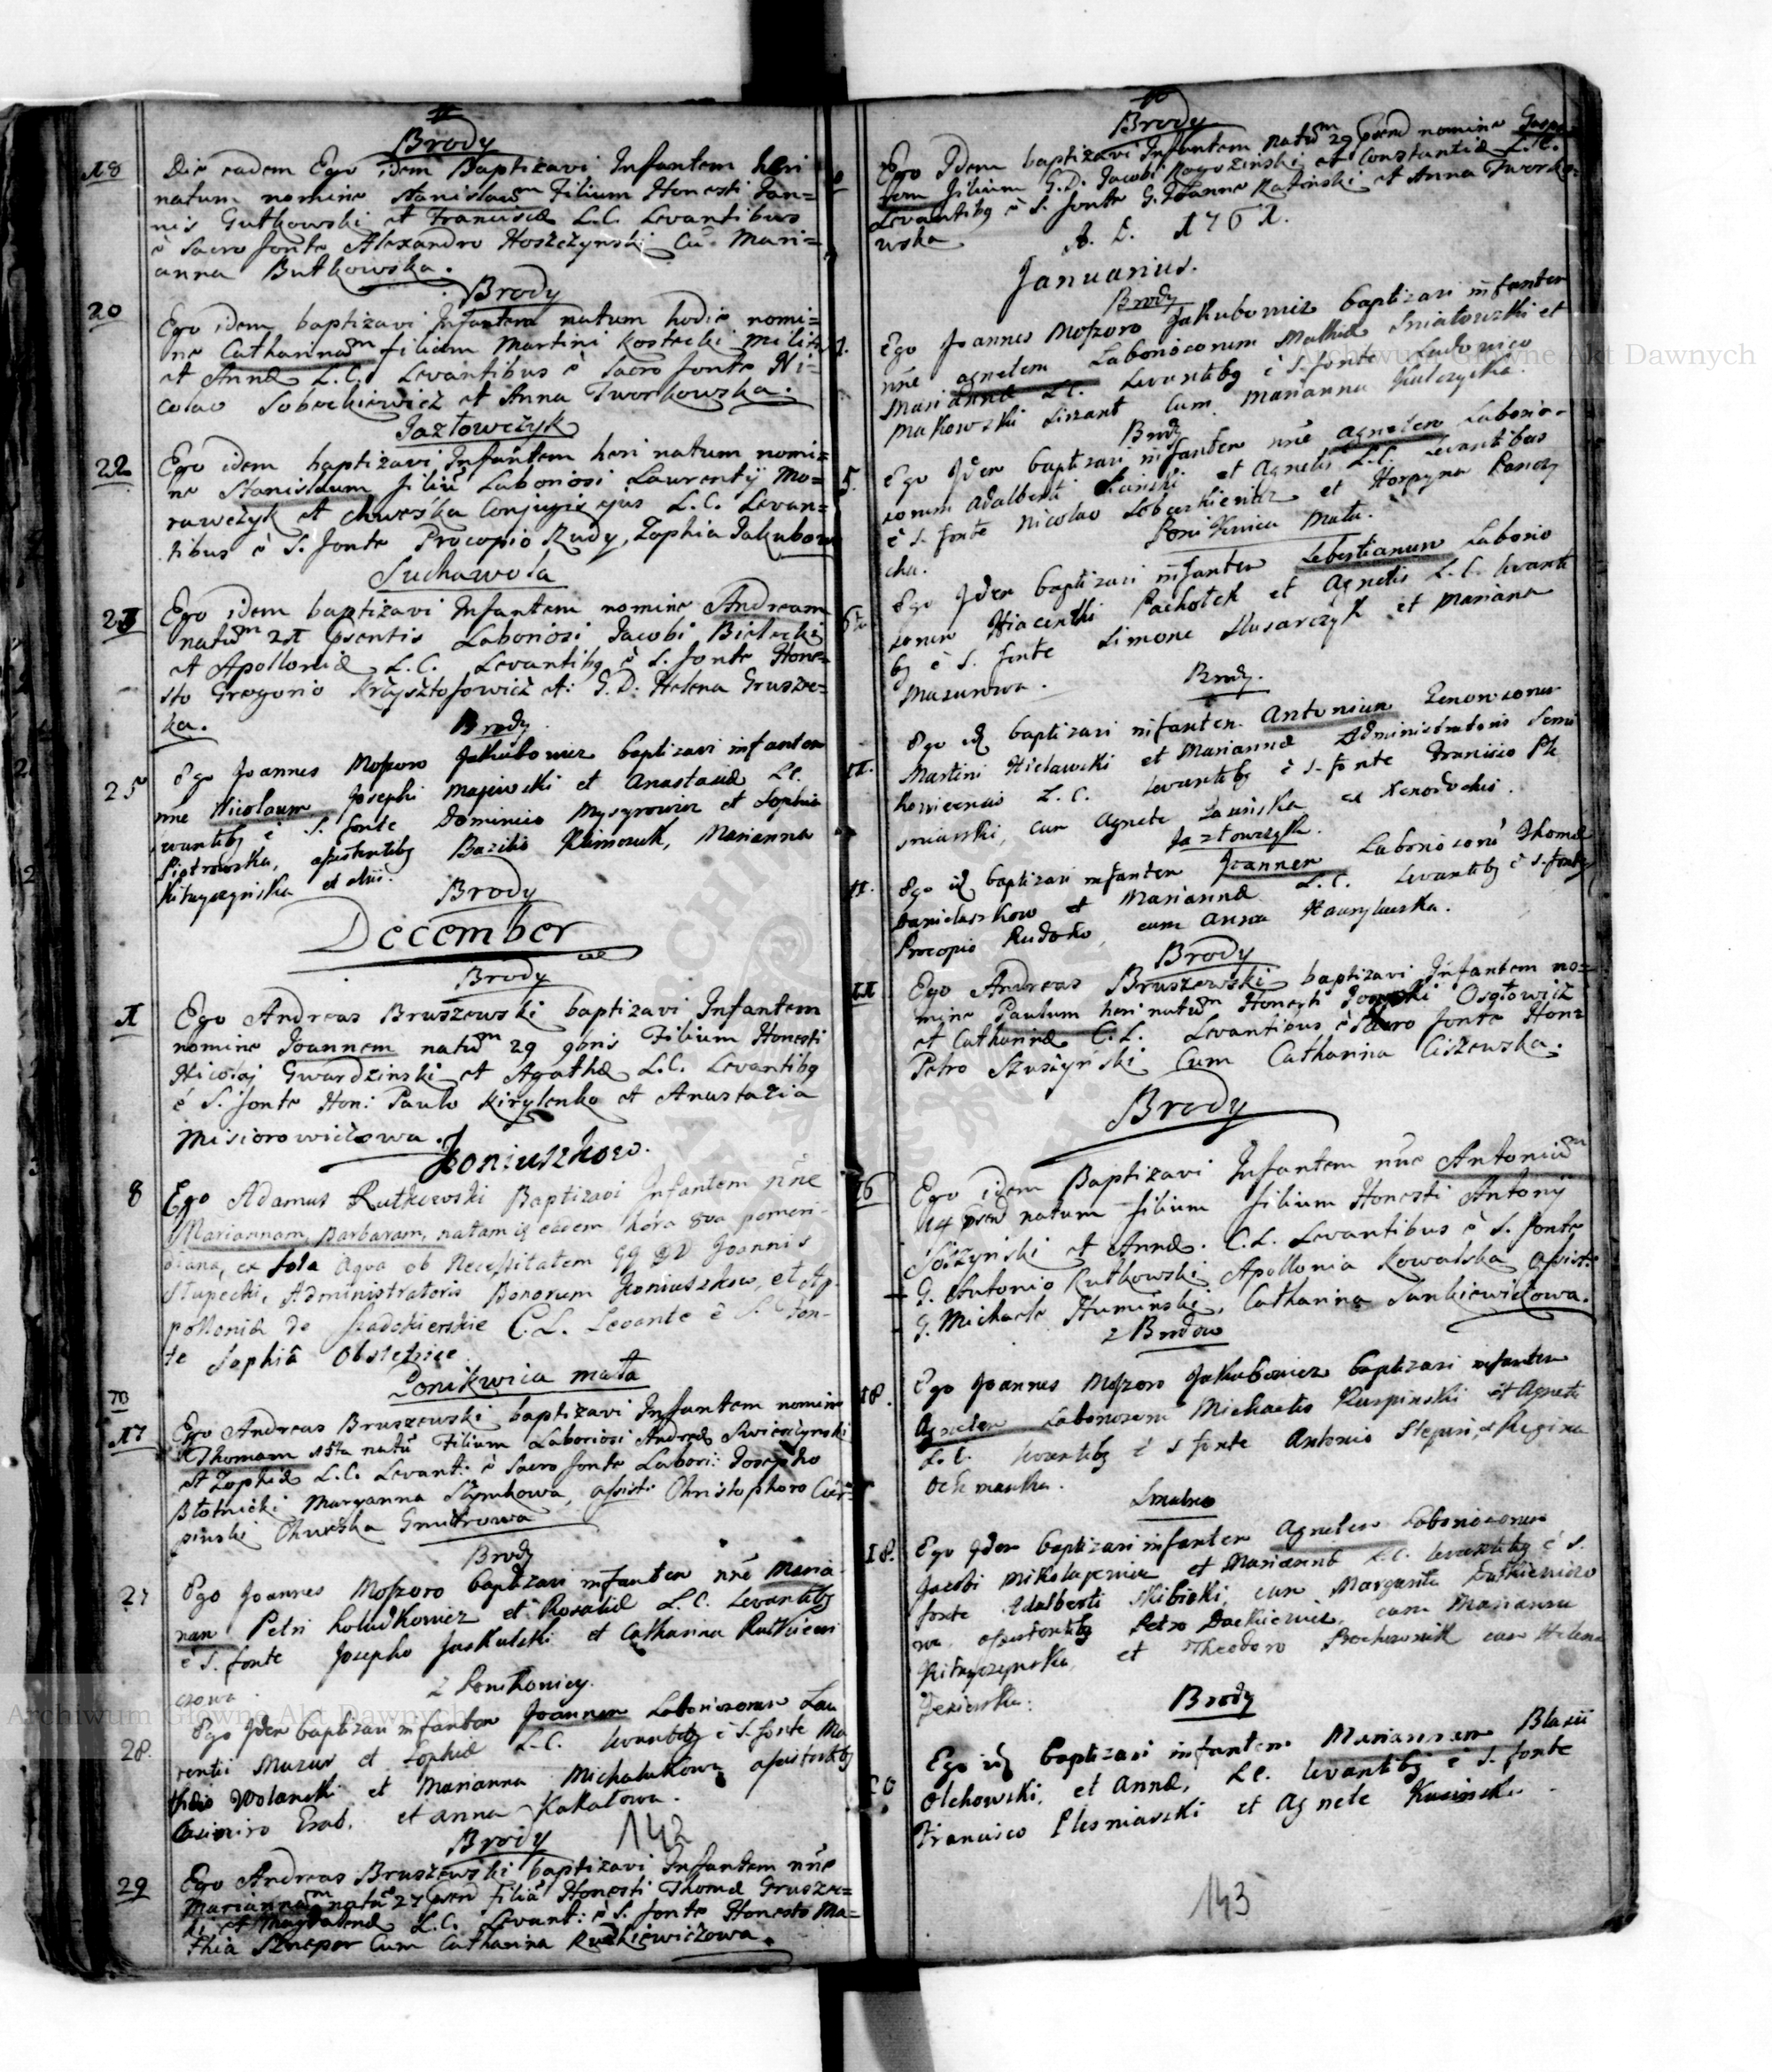 Brody
18 Die eadem Ego idem Baptizavi Infantem heri
natum nomine Stanislaum Filium Honesti Joan=
nis Gutkowski et Franciscæ L.C. Levantibus
è Sacro fonte Alexandro Hoszczynski Cu Mari=
anna Butkowska.
Brody
20 Ego idem baptizavi Infantem natum hodie nomi=
ne Catharinam filiam Martini Kostecki Milit
et Annæ L.C. Levantibus è Sacro fonte Ni=
colao Sobeckiewicz et Anna Tworkowska.
Jazłowczyk
22 Ego idem baptizavi Infantem heri natum nomi=
ne Stanislaum filiu Laboriosi Laurentÿ Mo=
rawczyk et Chweśka Conjugis ejus L.C. Levan=
tibus è S. fonte Procopio Rudy, Zophia Jakubow
Suchawola
23 Ego idem baptizavi Infantem nomine Andream
natum 21 psentis Laboriosi Jacobi Bielecki
et Apolloniæ L.C. Levantibq è S. fonte Hone=
sto Gregorio Krzysztofowicz et: G.D. Helena Grusze=
ka.
Brody
25 Ego Joannes Moszoro Jakubowicz baptizavi infantem
nne Nicolaum Josephi Majewski et Anastasiæ LC.
levantibq è S. fonte Dominico Mysyrowicz et Sophia
Piotrowska, assistentibq Bazilio Klimoszuk, Marianna
Kitayczyńska et alii.
Brody
December
Brody
1 Ego Andreas Bruszewski baptizavi Infantem
nomine Joannem natum 29 9bris Filium Honesti
Nicolaj Gwardzinski et Agathæ L.C. Levantibq
è S. fonte Hon: Paulo Kirylenko et Anastazia
Misiorowiczowa.
Koniuszkow.
8 Ego Adamus Rutkowski Baptizavi Infantem nne
Mariannam, Barbaram, natam eadem hora 8va pomeri-
diana, ex sola aqua ob Necessitatem GG DD Joannis
Słupecki, Administratoris Bonorum Koniuszkow, et Ap-
pollonia de C.L. Levante è S. fon-
te Sophia Obstetrice
Ponikwica mała
10
17 Ego Andreas Bruszewski baptizavi Infantem nomine
Thomam natu Filium Laboriosi Andreæ Swierczynski
et Zophiæ L.C. Levant: è Sacro fonte Labori: Josepho
Błotnicki Maryanna Szymkowa, assist: Christophoro Cier=
pinski Chweśka Gmitrowa
Brody
27 Ego Joannes Moszoro baptizavi infantem nne Maria
nan Petri Koludkowicz et Rosaliæ L.C. Levantibq
è S. fonte Josepho Jaskulski et Catharina Rutkiewi
czowa
z Ponikowicy.
28. Ego Idem baptizavi infantem Joannem Laboriosorum Lau
rentii Mazur et Sophiæ L.C. levantibq è S. fonte Ma
thæo Wolanski et Marianna Michalukowa assistentibq
Casimiro Grab, et Anna Kakałowa.
Brody 142
29 Ego Andreas Bruszewski baptizavi Infantem nne
Mariannam nata 27 psen Filia Honesti Thomæ Grusze=
ki et Magdalenæ L.C. Levant: è S. fonte Honesto Ma=
thia Sznepor Cum Catharina Ruskiewiczowa.
Brody
Ego Idem baptizavi Infantem natum 29 psen nomine Gaspa
rem filium G.D. Jacobi Rogozinski et Constantiæ L.C.
Levantibq è S. fonte G. Joanne Kazinski et Anna Tworko=
wska
A. D. 1761.
Januarius.
Brody
1. Ego Joannes Moszoro Jakubowicz baptizavi infantem
nne Agnetem Laboriosorum Mathiæ Sniatowski et
Mariannæ LC. Levantibq è S. fonte Ludovico
Makowski Siczant cum Marianna Kulczycka.
Brody
5. Ego Idem baptizavi infantem nne Agnetem Laborio-
sorum Adalberti et Agnetis L.C. levantibus
è S. fonte Nicolao Sobeckiewicz et Horpyna Panczy
cha.
Ponikowica Mała.
6ta Ego Idem baptizavi infantem Sebestianum Laborio
sorum Hiacinthi Pachołek et Agnetis L.C. levanti
bq è S. fonte Simone Slusarczyk et Mariana
Mazurowa.
Brody.
11. Ego id baptizavi infantem Antonium Generosorum
Martini Hielawski et Mariannæ Administratoris
L.C. levantibq è S. fonte Francisco Ple
sniarski, cum Agnete Lasinska ex Xenodochio.
Jazłowczyk.
11. Ego id baptizavi infantem Joannem Laboriosoru Thomæ
Danielaszkow et Mariannæ L.C. levantibq è S. fonte
Procopio Rudoho, cum Anna Hawryluszka.
Brody
11 Ego Andreas Bruszewski baptizavi Infantem no=
mine Paulum heri natum Honesti Josephi Osgłowicz
et Catharinæ C.L. Levantibus è Sacro fonte Hon=
Petro Szuszyński Cum Catharina Ciszewska.
Brody
16 Ego idem Baptizavi Infantem nne Antonium
14 psen natum filium filium Honesti Antonÿ
Soszynski et Annæ. C.L. Levantibus è S. fonte
G. Antonio Rutkowski Apollonia Kowalska assist:
G. Michaele Huminski, Catharina Sankiewiczowa.
z Brodow
18. Ego Joannes Moszoro Jakubowicz baptizavi infantem
Agnetem Laboriosorum Michaelis Karpinski et Agnetis
L.C. levantibq è S fonte Antonio Stepuri, et Regina
Ochmanska.
Smulno
18. Ego Idem baptizavi infantem Agnetem Laboriosorum
Jacobi Mikołajewicz et Mariannæ L.C. levantibq è S.
fonte Adalberti Skibicki, cum Margareta Rutkiewiczo
wa, assistentibq Petro Dackiewicz, cum Marianna
Kitayczynska, et Theodoro Prochownik cum Helena
Jezierska:
Brody
20 Ego id baptizavi infantem Mariannam Blasii
Olchowski, et Annæ, LC. levantibq è S. fonte
Francisco Plesniarski et Agnete Kusinska.
143
Archiwum Główne Akt Dawnych
Archiwum Główne Akt Dawnych